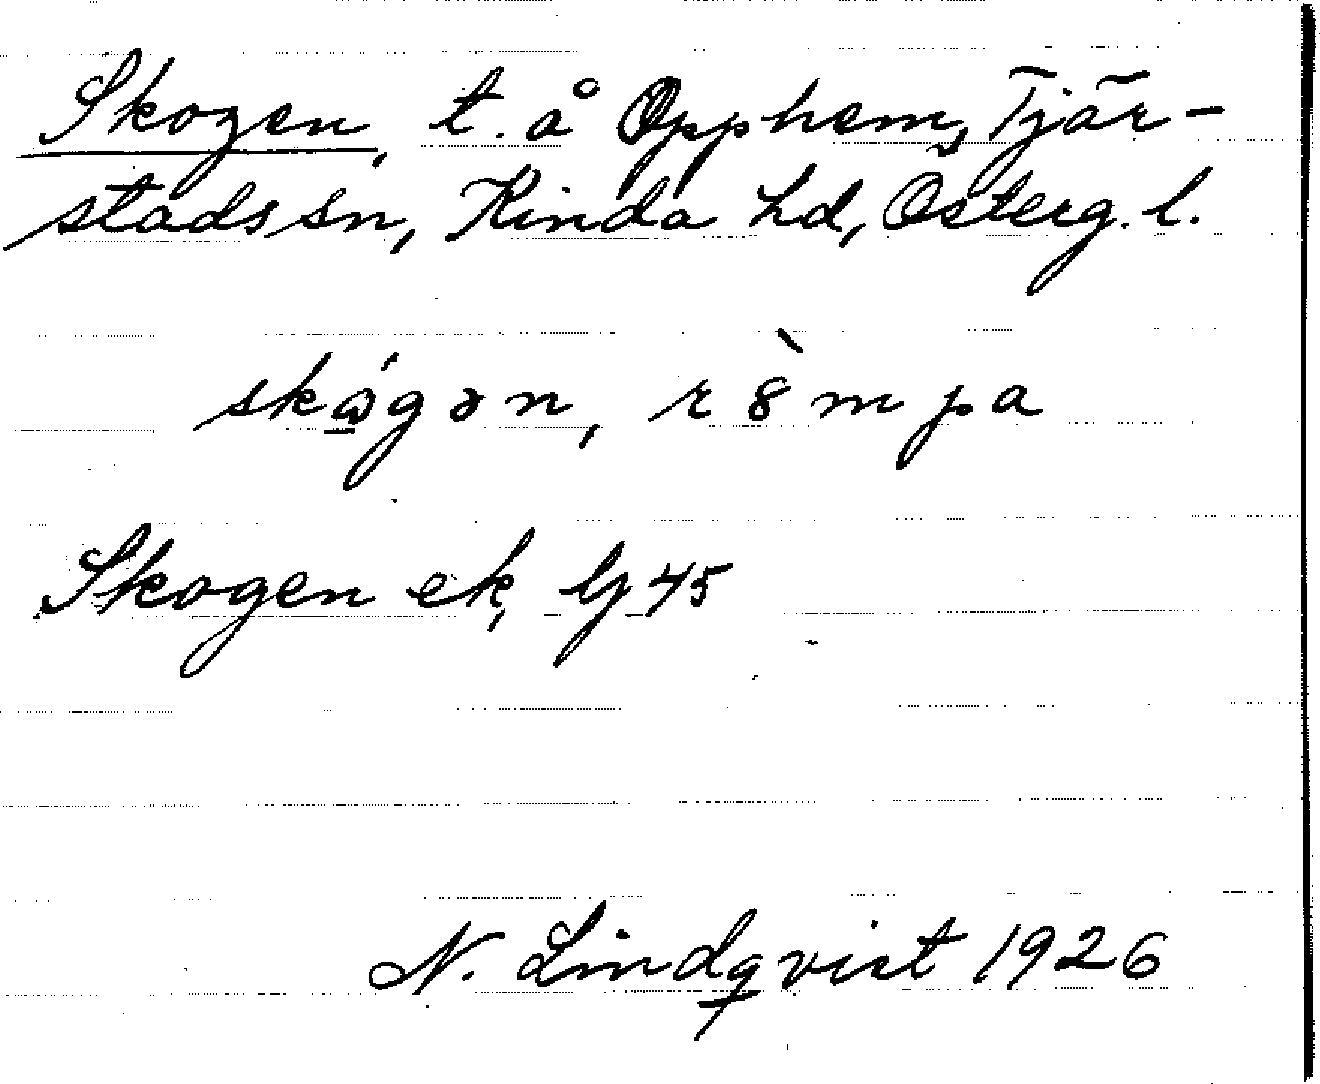 Skogen, t. å Opphem, Tjär-
stads sn, Kinda hd, Österg. l.
skǫ́gən, r8̀mpa
Skogen ek, Lj 45
N. Lindqvist 1926